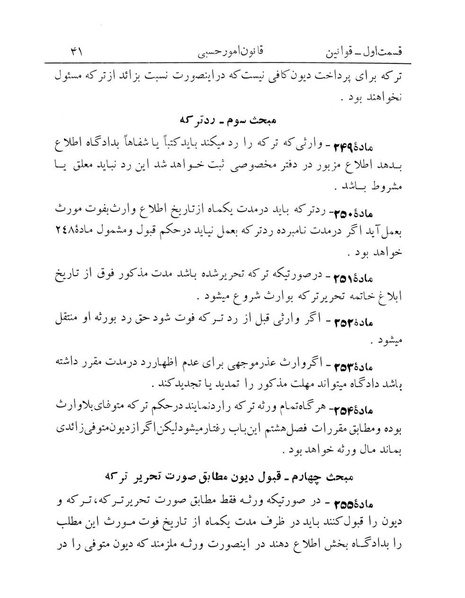 قسمت اول ـ قوانین قانون امور حسبی ۴۱
ترکه برای پرداخت دیون کافی نیست که در اینصورت نسبت بزائد از ترکه مسئول
نخواهند بود .
مبحث سوم ـ رد ترکه
مادهٔ ۲۴۹ـ وارثی که ترکه را رد میکند باید کتباً یا شفاهاً بدادگاه اطلاع
بدهد اطلاع مزبور در دفتر مخصوصی ثبت خواهد شد این رد نباید معلق یا
مشروط باشد .
مادهٔ ۲۵۰ـ رد ترکه باید در مدت یکماه از تاریخ اطلاع وارث بفوت مورث
بعمل آید اگر در مدت نامبرده رد ترکه بعمل نیاید در حکم قبول و مشمول مادهٔ ۲۴۸
خواهد بود .
مادهٔ ۲۵۱ـ در صورتیکه ترکه تحریر شده باشد مدت مذکور فوق از تاریخ
ابلاغ خاتمه تحریر ترکه بوارث شروع میشود .
مادهٔ ۲۵۲ـ اگر وارثی قبل از رد ترکه فوت شود حق رد بورثه او منتقل
میشود .
مادهٔ ۲۵۳ـ اگر وارث عذر موجهی برای عدم اظهار رد در مدت مقرر داشته
باشد دادگاه میتواند مهلت مذکور را تمدید یا تجدید کند .
مادهٔ ۲۵۴ـ هر گاه تمام ورثه ترکه را رد نمایند در حکم ترکه متوفای بلا وارث
بوده و مطابق مقررات فصل هشتم این باب رفتار میشود لیکن اگر از دیون متوفی زائدی
بماند مال ورثه خواهد بود .
مبحث چهارم ـ قبول دیون مطابق صورت تحریر ترکه
مادهٔ ۲۵۵ـ در صورتیکه ورثه فقط مطابق صورت تحریر ترکه، ترکه و
دیون را قبول کنند باید در ظرف مدت یکماه از تاریخ فوت مورث این مطلب
را بدادگاه بخش اطلاع دهند در اینصورت ورثه ملزمند که دیون متوفی را در